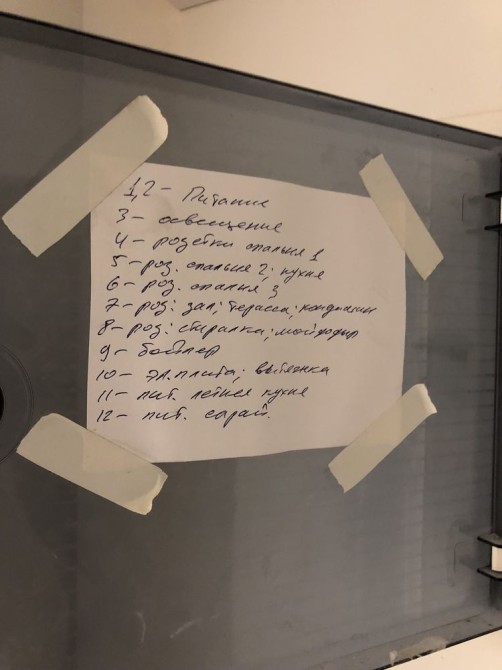 1,2 - Питание
3 - освещение
4 - розетки спальня 1
5 - роз. спальня 2; кухня
6 - роз. спальня 3
7 - роз: зал; терасса; кондицины
8 - роз: стиралка; мойдодыр
9 - бойлер
10 - эл. плита; вытяжка
11 - пит. летняя кухня
12 - пит. сарай.